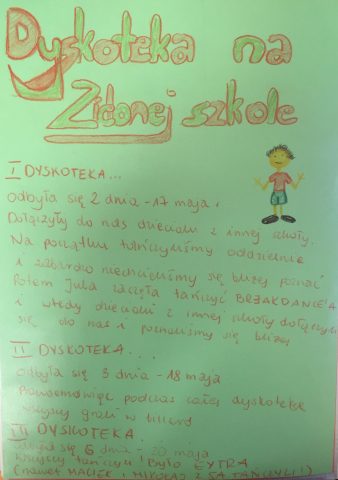 Dyskoteka na
Zielonej szkole
I DYSKOTEKA...
Odbyła się 2 dnia - 17 maja.
Dołączyły do nas dzieciaki z innej szkoły.
Na początku tańczyliśmy oddzielnie
i zabardzo niechcieliśmy się bliżej poznać
Potem Julia zaczęła tańczyć BREAKDANCE'A
i wtedy dzieciaki z innej szkoły dołączyli
się do nas i poznaliśmy się bliżej
II DYSKOTEKA...
odbyła się 3 dnia - 18 maja
podczas całej dyskoteki
wszyscy grali w billard
III DYSKOTEKA.
odbyła się 6 dnia - 20 maja
Wszyscy tańczyli! Było EXTRA
(nawet MACIEK i MIKOŁAJ Z 5A TAŃCZYLI!)